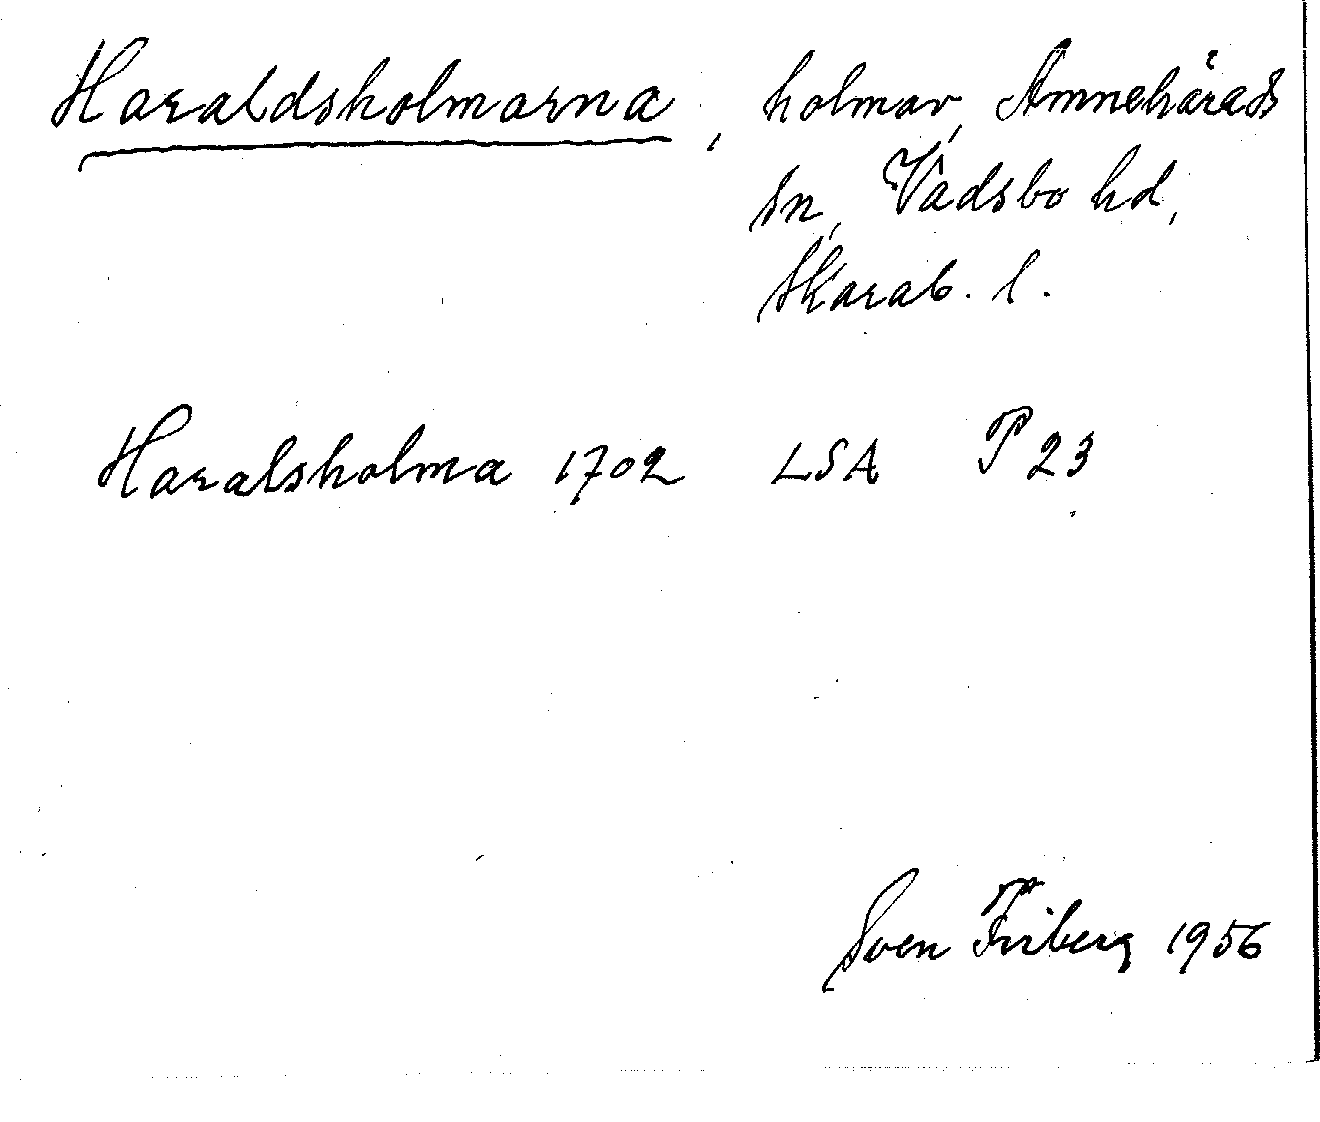 Haraldsholmarna, holmar, Amnehärads
sn, Vadsbo hd,
Skarab. l.
Haralsholma 1702 LSA P 23
Sven Friberg 1956